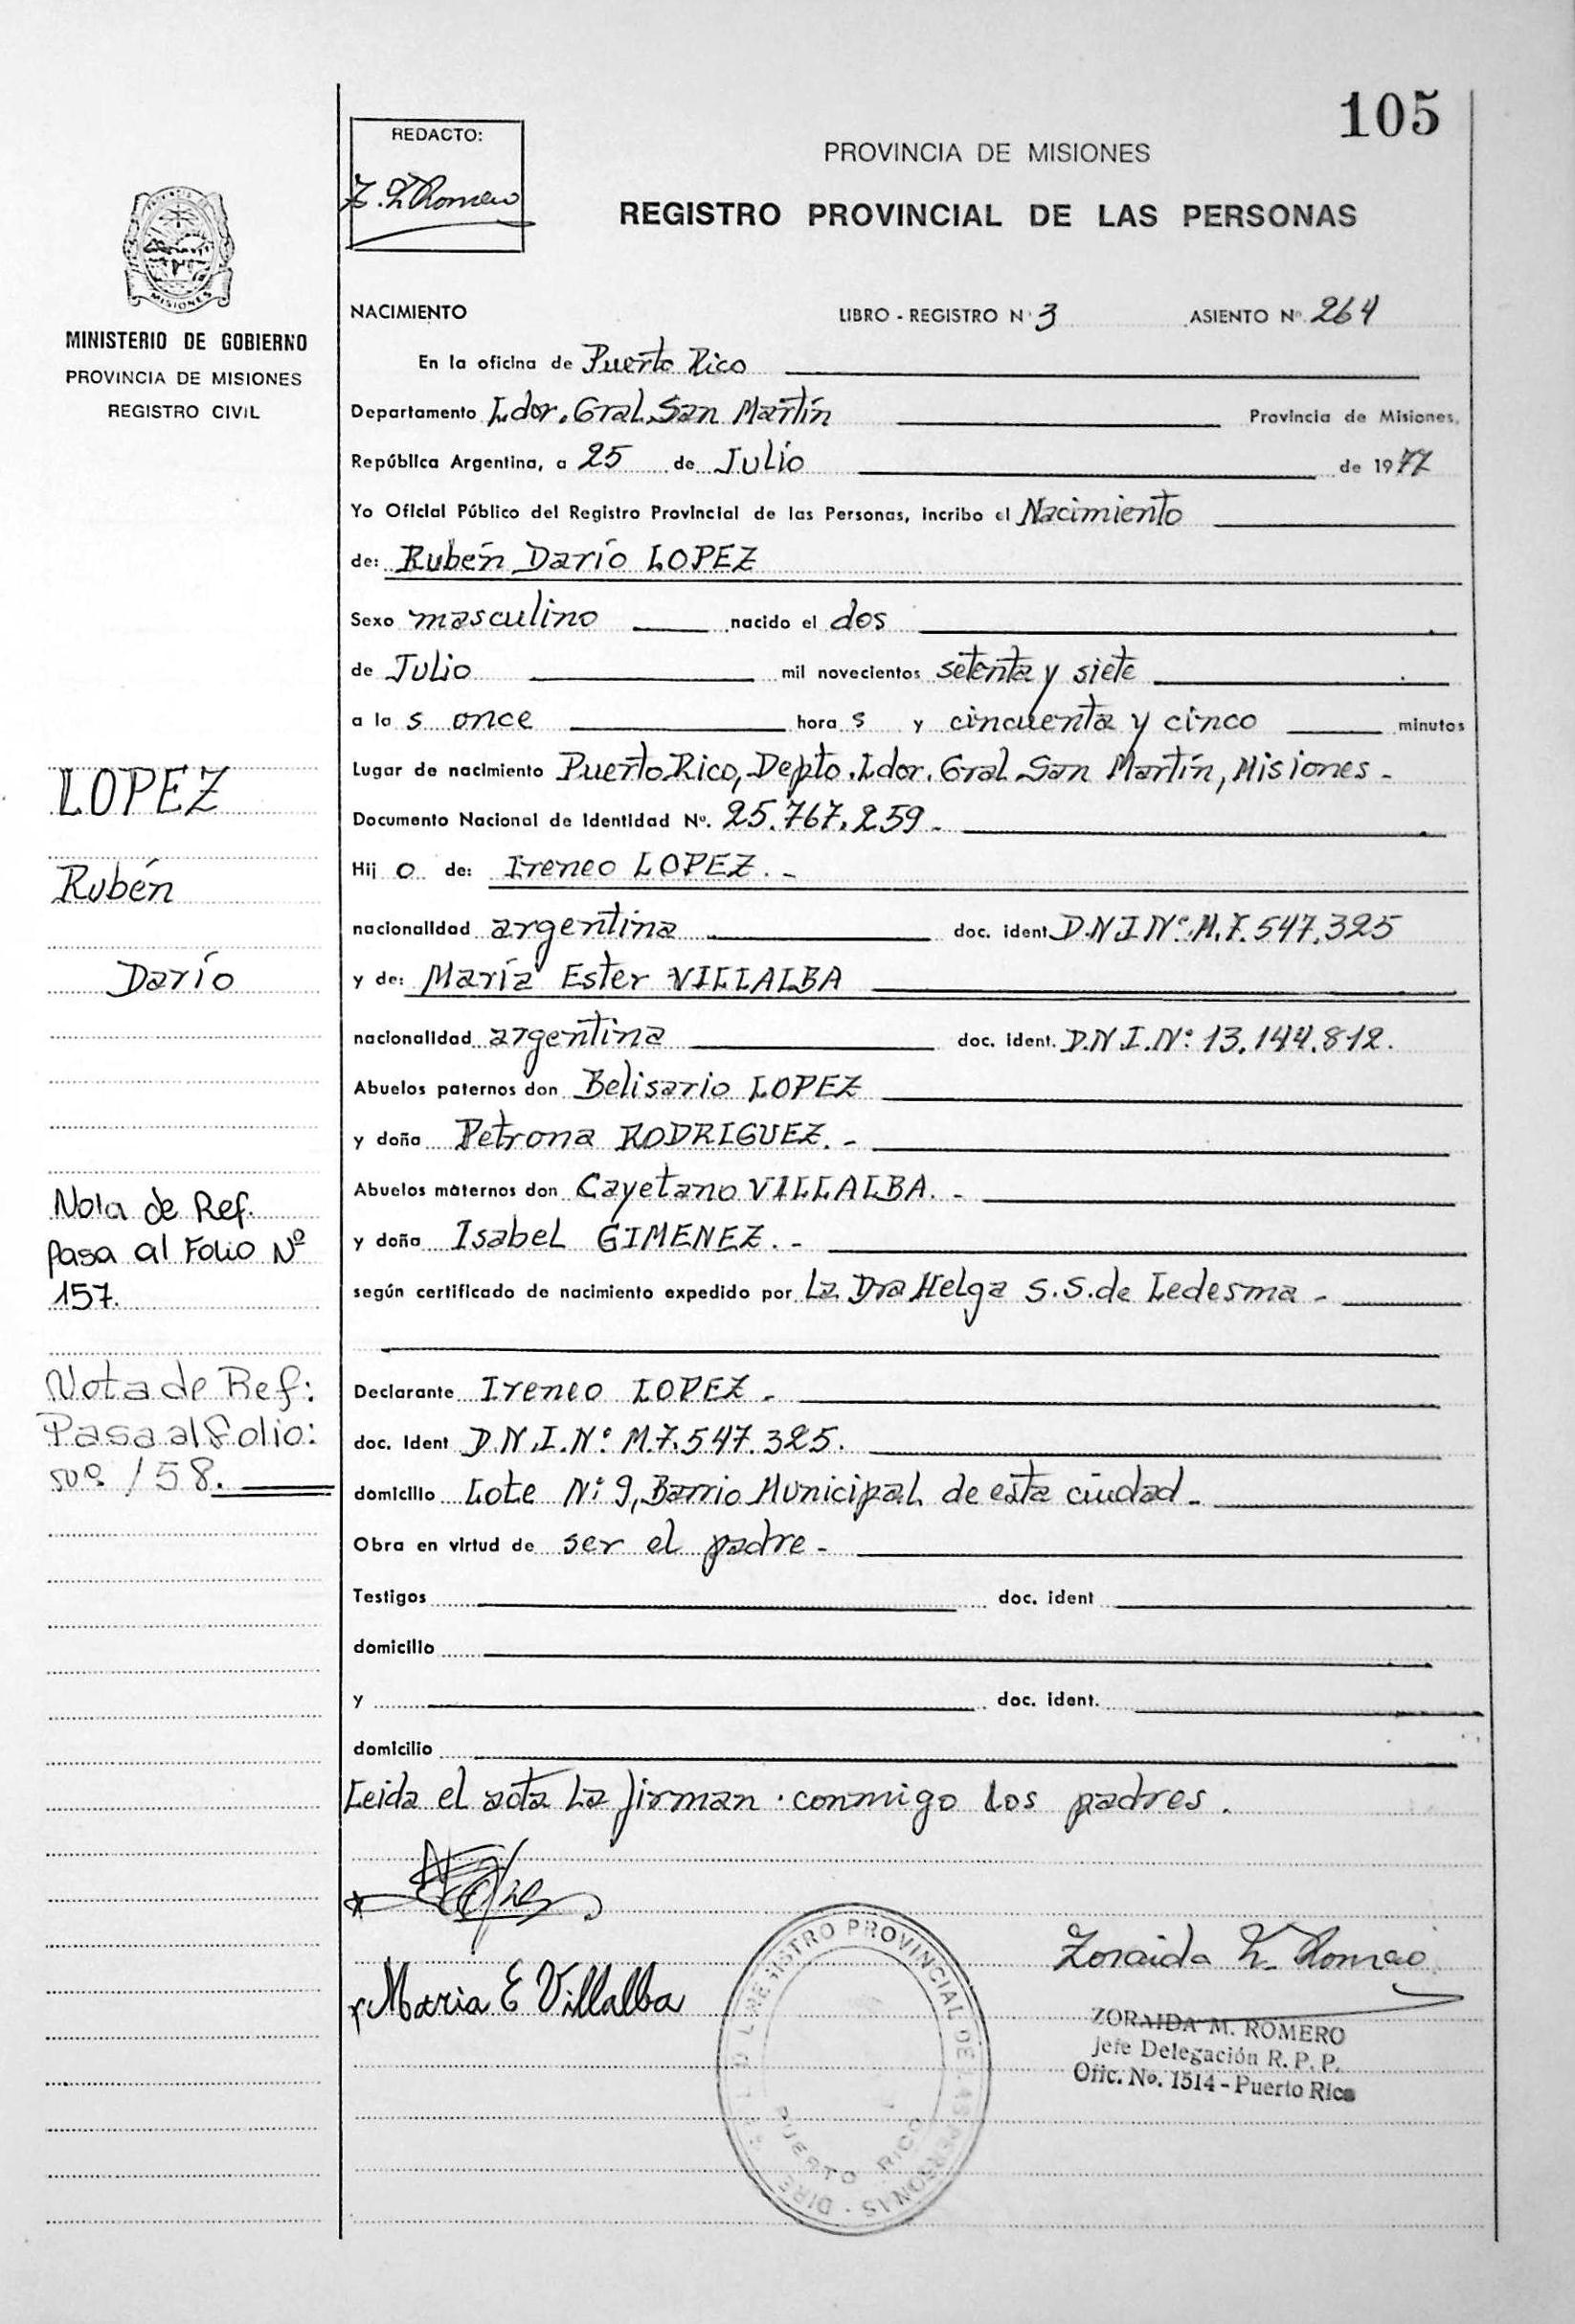 105
REDACTO:
Z. M Romero
PROVINCIA DE MISIONES
REGISTRO PROVINCIAL DE LAS PERSONAS
MISIONES
MINISTERIO DE GOBIERNO
PROVINCIA DE MISIONES
REGISTRO CIVIL
NACIMIENTO LIBRO - REGISTRO Nº 3 ASIENTO Nº 264
En la oficina de Puerto Rico
Departamento Ldor. Gral. San Martín Provincia de Misiones,
República Argentina, a 25 de Julio de 1977
Yo Oficial Público del Registro Provincial de las Personas, incribo el Nacimiento
de: Rubén Darío LOPEZ
Sexo masculino nacido el dos
de Julio mil novecientos setenta y siete
a la s once hora s y cincuenta y cinco minutos
Lugar de nacimiento Puerto Rico, Depto. Ldor. Gral San Martín, Misiones -
Documento Nacional de Identidad Nº. 25.767.259 -
Hij o de: Ireneo LOPEZ . -
nacionalidad argentina doc. ident. D.N.I Nº. M.7.547.325
y de: María Ester VILLALBA
nacionalidad argentina doc. ident. D.N.I.Nº 13.144.812.
Abuelos paternos don Belisario LOPEZ
y doña Petrona RODRIGUEZ. -
Abuelos maternos don Cayetano VILLALBA. -
y doña Isabel GIMENEZ. -
según certificado de nacimiento expedido por La Dra Helga S. S. de Ledesma -
Declarante Ireneo LOPEZ -
doc. Ident D.N.I.Nº M.7.547.325.
domicilio Lote Nº 9, Barrio Municipal de esta ciudad -
Obra en virtud de ser el padre -
Testigos doc. ident
domicilio
y doc. ident.
domicilio
Leida el acta la firman conmigo los padres.
LOPEZ
Rubén
Darío
Nota de Ref.
pasa al Folio Nº
157.
Nota de Ref:
Pasa al folio:
nº 158.
Maria E Villalba
Zoraida M. Romero
ZORAIDA M. ROMERO
Jefe Delegación R. P. P.
Ofic. No. 1514 - Puerto Rico
REGISTRO PROVINCIAL DE LAS PERSONAS
PUERTO RICO